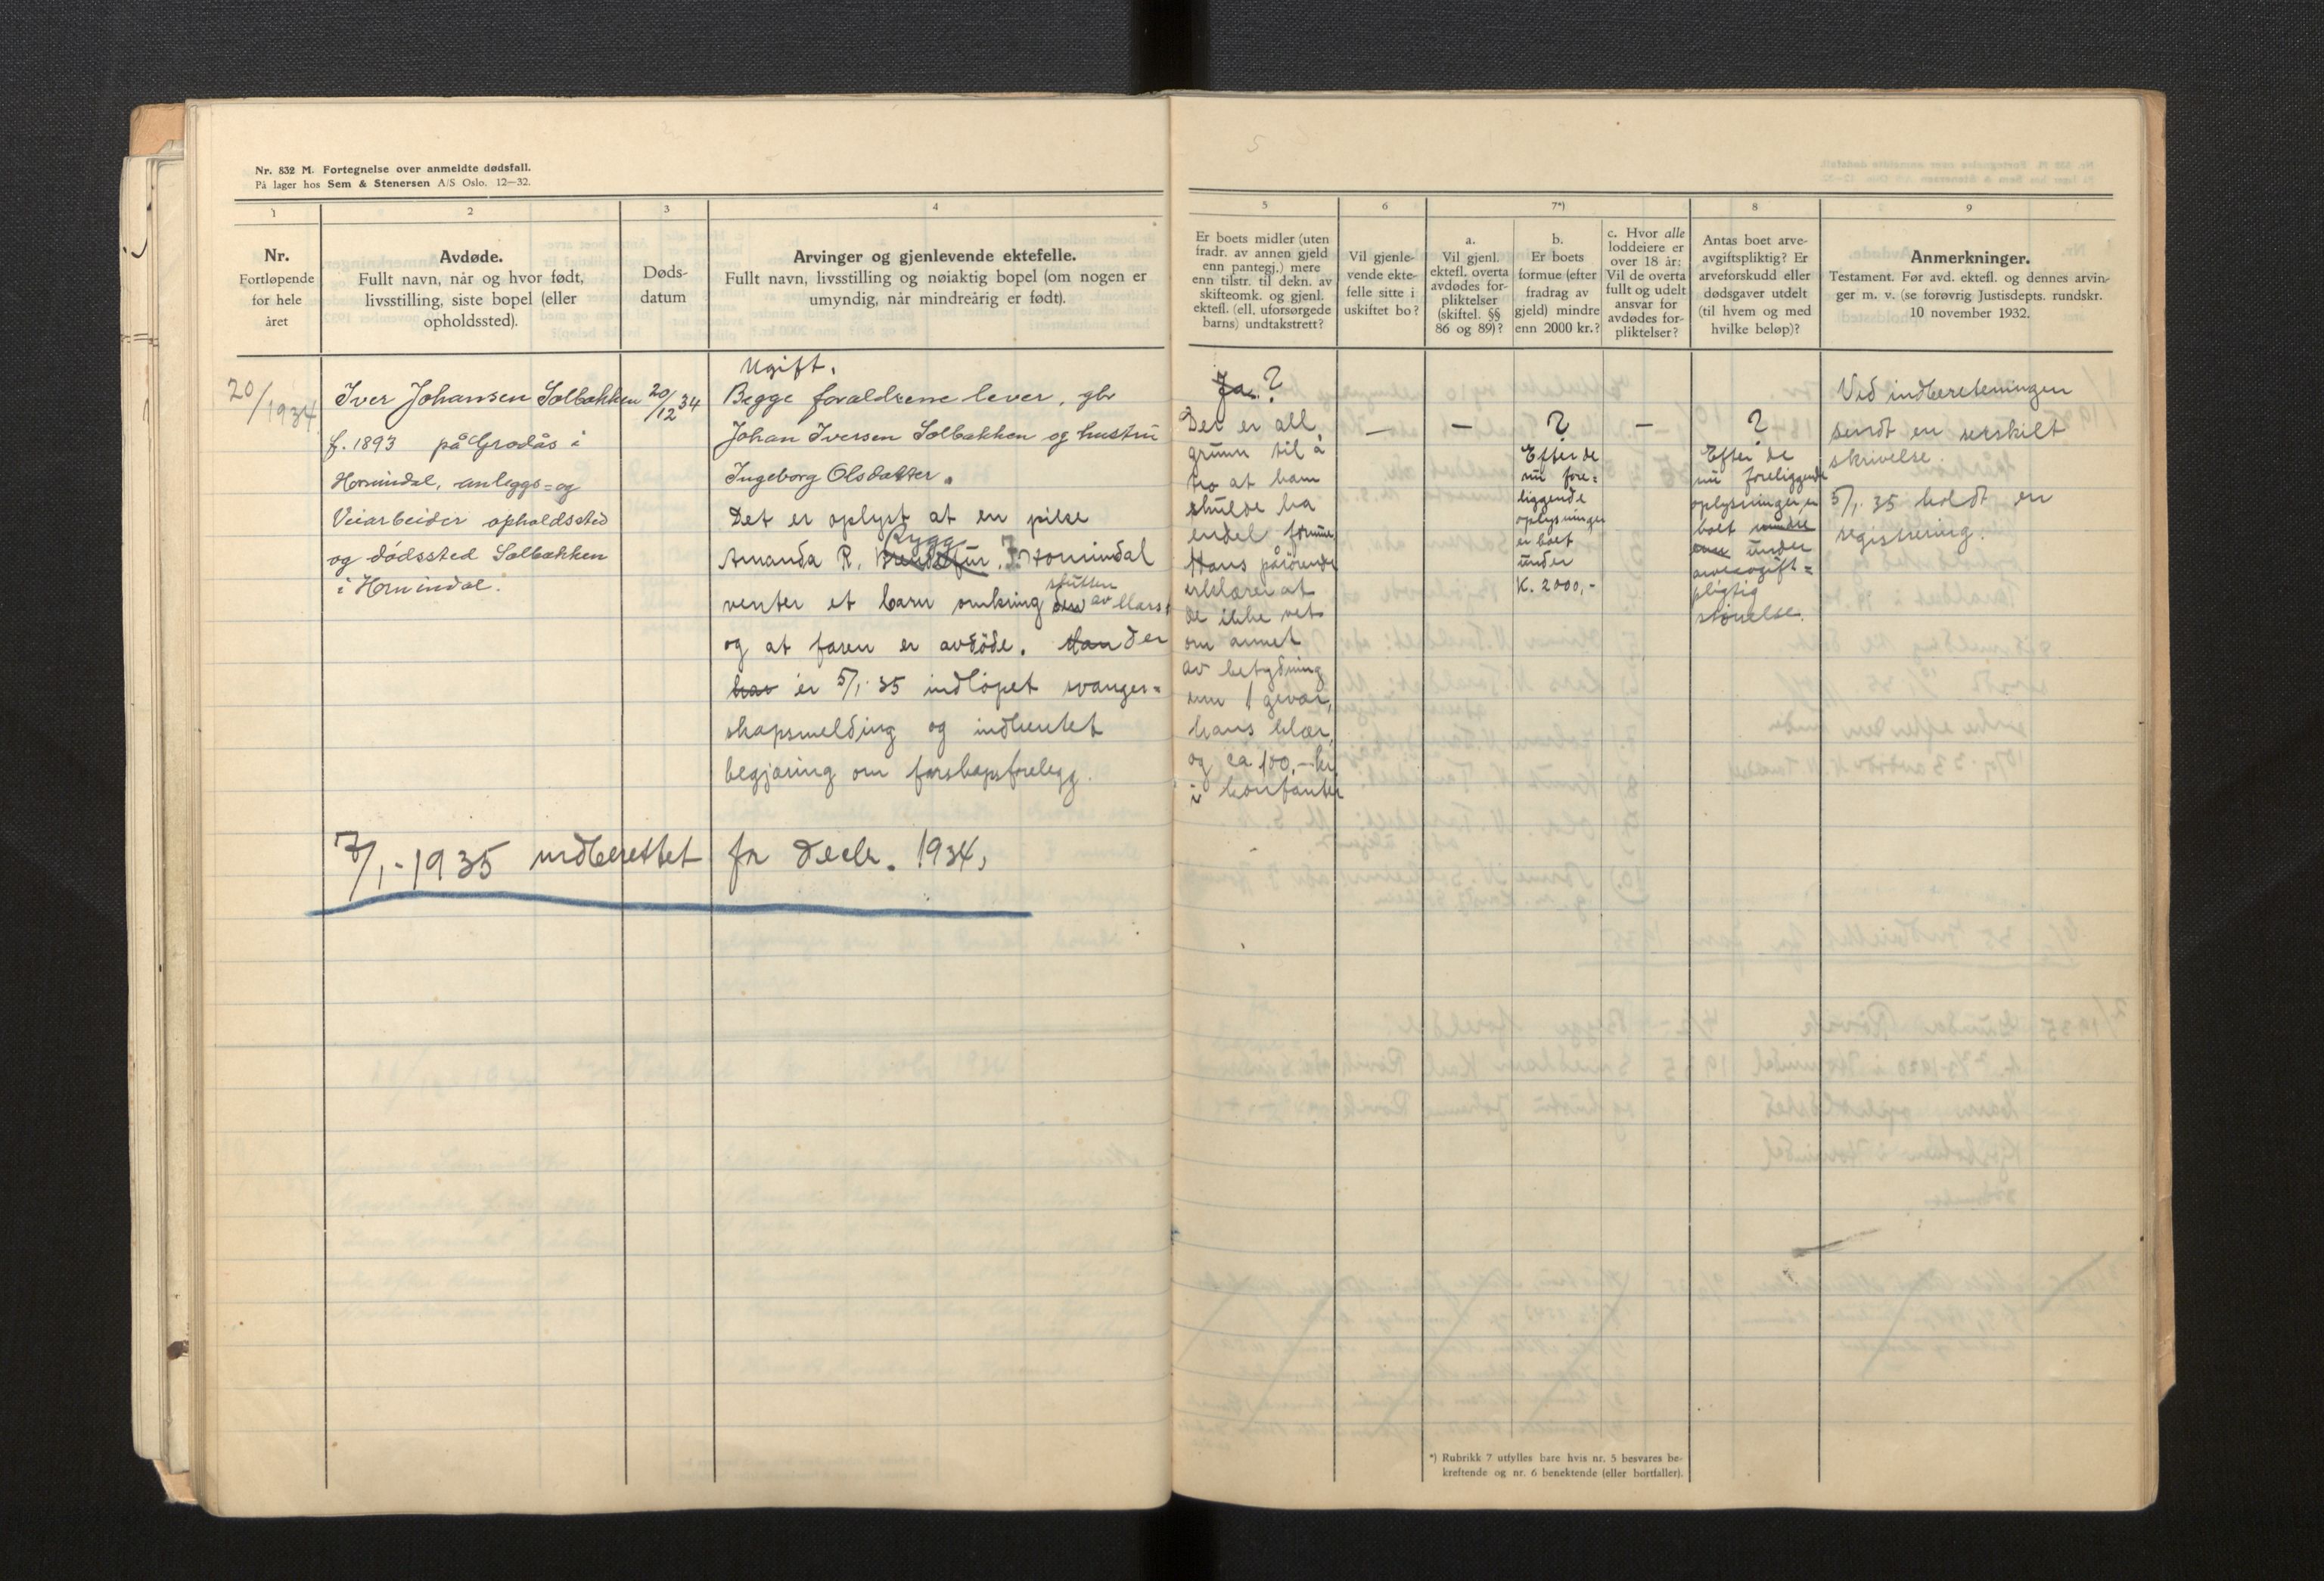 Nr. 832 M. Fortegnelse over anmeldte dødsfall.
På lager hos Sem & Stenersen A/S Oslo. 12—32.
1
2
3
4
Nr.
Fortløpende
for hele
året
Avdøde.
Fullt navn, når og hvor født,
livsstilling, siste bopel (eller
opholdssted).
Døds-
datum
Arvinger og gjenlevende ektefelle.
Fullt navn, livsstilling og nøiaktig bopel (om nogen er
umyndig, når mindreårig er født).
20/1934
Iver Johansen Solbakken
f. 1893 på Grodås i
Hornindal, anleggs- og
Veiarbeider opholdssted
og dødssted Solbakken
i Hornindal.
20/12 34
Ugift.
Begge foraldrene lever, gbr
Johan Iversen Solbakken og hustru
Ingeborg Olsdatter.
Det er oplyst at en pike
Rygg
Amanda R. Hornindal
slutten
venter et barn omkring den av Mars,
og at faren er avdøde. Han Der
har er 5/1 35 indløpet svanger=
skapsmelding og indhentet
begjæring om farskapsforelegg.
7/1 - 1935 indberettet for decbr. 1934,
5
5
6
7*)
8
9
Er boets midler (uten
fradr. av annen gjeld
enn pantegj.) mere
enn tilstr. til dekn. av
skifteomk. og gjenl.
ektefl. (ell. uforsørgede
barns) undtakstrett?
Vil gjenle-
vende ekte-
felle sitte i
uskiftet bo?
a.
Vil gjenl.
ektefl. overta
avdødes for-
pliktelser
(skiftel. §§
86 og 89)?
b.
Er boets
formue (efter
fradrag av
gjeld) mindre
enn 2000 kr.?
c. Hvor alle
loddeiere er
over 18 år:
Vil de overta
fullt og udelt
ansvar for
avdødes for-
pliktelser?
Antas boet arve-
avgiftspliktig? Er
arveforskudd eller
dødsgaver utdelt
(til hvem og med
hvilke beløp)?
Anmerkninger.
Testament. Før avd. ektefl. og dennes arvin-
ger m. v. (se forøvrig Justisdepts. rundskr.
10 november 1932.
Ja. ?
Det er all
grunn til å
tro at ham
skulde ha
endel formue
Hans pårørende
erklærer at
de ikke vet
om annet
av betydning
enn 1 gevær,
hans klær,
og ca 100,- kr
i kontanter
—
—
?
Efter de
nu fore=
liggende
oplysninger
er boet
under
K. 2000,-
—
?
Efter de
nu foreliggende
oplysninger er
boet mindre
enn under
arveavgift=
pligtig
størrelse.
Ved indberetningen
sendt en serskilt
skrivelse.
5/1 35 holdt en
registrering.
*) Rubrikk 7 utfylles bare hvis nr. 5 besvares be-
kreftende og nr. 6 benektende (eller bortfaller).